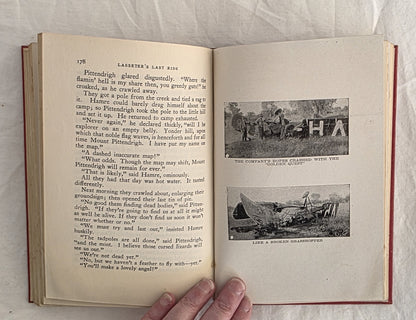 178 LASSETER'S LAST RIDE
Pittendrigh glared disgustedly. "Where the
flamin' hell is my share then, you greedy guts?" he
croaked, as he crawled away.
They got a pole from the creek and tied a rag to
it. Hamre could barely drag himself about the
camp; so Pittendrigh took the pole to the little hill
and set it up. He returned to camp exhausted.
"Never again," he declared thickly, "will I be
explorer on an empty belly. Yonder hill, upon
which that noble flag waves, is henceforth and for all
time Mount Pittendrigh. I have put my name on
the map."
"A dashed inaccurate map!"
"What odds. Though the map may shift, Mount
Pittendrigh will remain for ever."
"That is likely," said Hamre, ominously.
All they had that day was hot water. It tasted
differently.
Next morning they crawled about, enlarging their
groundsign; then opened their last tin of pie.
"No good them finding dead bodies," said Pitten-
drigh. "If they're going to find us at all it might
as well be alive. If they don't find us soon it won't
matter whether or no."
"We must try and last out," insisted Hamre
huskily.
"The tadpoles are all done," said Pittendrigh,
"and the most. I believe those cursed lizards will
see us out."
"We're not dead yet."
"No, but we haven't a feather to fly with—yet."
"You'll make a lovely angel!"
HA
THE COMPANY'S ROVER CRASHED WITH THE
"GOLDEN QUEST"
LIKE A BROKEN GRASSHOPPER